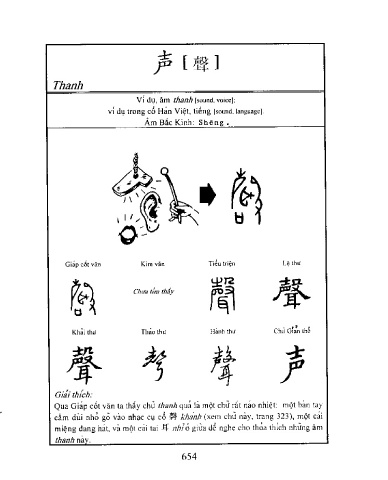 声 [ 聲 ]
Thanh
Ví dụ, âm thanh [sound, voice];
ví dụ trong cổ Hán Việt, tiếng [sound, language].
Âm Bắc Kinh: Shēng.
Giáp cốt văn Kim văn Tiểu triện Lệ thư
Chưa tìm thấy 聲 聲
Khải thư Thảo thư Hành thư Chữ Giản thể
聲 声
Giải thích:
Qua Giáp cốt văn ta thấy chữ thanh quả là một chữ rất náo nhiệt: một bàn tay
cầm dùi nhỏ gõ vào nhạc cụ cổ 磬 khánh (xem chữ này, trang 323), một cái
miệng đang hát, và một cái tai 耳 nhĩ ở giữa để nghe cho thỏa thích những âm
thanh này.
654